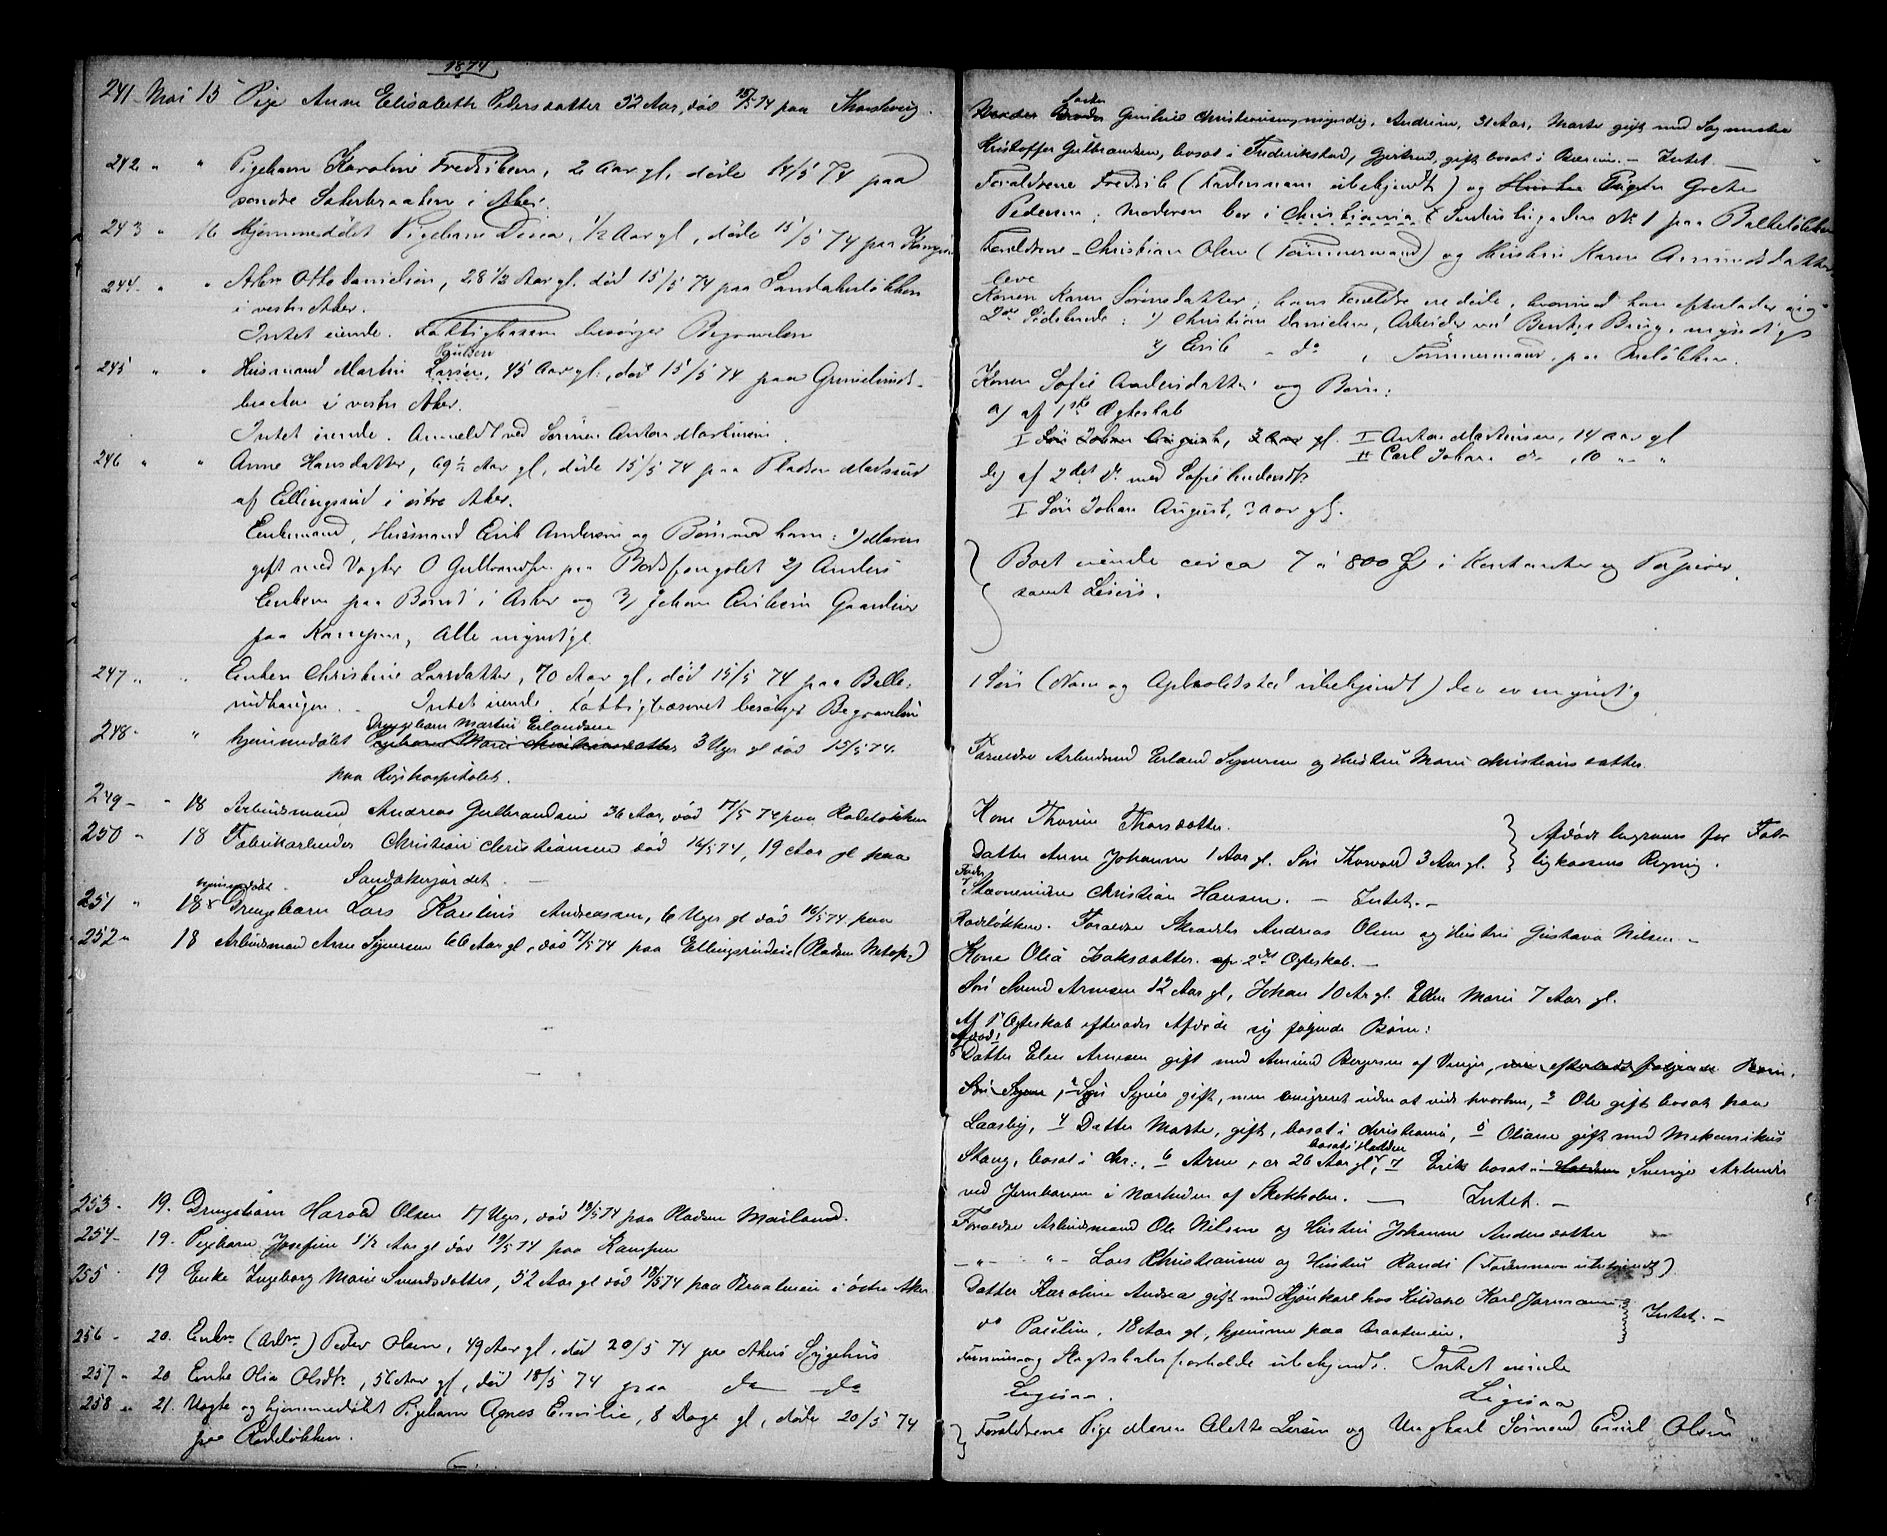 1874
241 Mai 15 Pige Anne Elisabeth Pedersdatter 52 Aar, død 15/5 74 paa
242 " " Pigebarn Karoline Fredriksen, 2 Aar gl, døde 14/5 74 paa
søndre i Aker.
243 " 16 Hjemmedøbt Pigebarn 1/2 Aar gl, døde 15/5 74 paa Kampen
244 " " Arbm Otto Danielsen, 28 1/2 Aar gl. død 15/5 74 paa Sandakerløkken
i vestre Aker.
Intet eiende. Fattigkassen besørger Begravelsen
Paulsen
245 " " Husmand Martin Larsen, 45 Aar gl., død 15/5 74 paa
braaten i vestre Aker.
Intet eiende. Anmeldt ved Sønnen Anton Martinsen.
246 " " Anne Hansdatter, 69 1/2 Aar gl, døde 15/5 74 paa Pladsen
af Ellingsrud i østre Aker.
Enkemand, Husmand Erik Andersen og Børn med ham: 1) Maren
gift med Vagter O Gulbrandsen paa Bodsfængslet 2) Anders
Eriksen paa i Asker og 3) Johan Eriksen Gaardeier
paa Kampen, Alle myndige.
247 " " Enken Christine Larsdatter, 70 Aar gl, død 15/5 74 paa Balke-
rudhaugen. Intet eiende. Fattigvæsenet besørger Begravelsen
Drengebarn Martin Erlandsen
248 " hjemmedøbt Pigebarn Marie Christiansdatter 3 Uger gl død 15/5 74.
paa Rigshospitalet.
249 " 18 Arbeidsmand Andreas Gulbrandsen 36 Aar, død 17/5 74 paa Rodeløkken
250 " 18 Fabrikarbeider Christian Christiansen død 16/5 74, 19 Aar gl paa
Sandakerjordet.
hjemmedøbt
251 " 18 Drengebarn Lars Andreassen, 6 Uger gl død 16/5 74 paa
252 " 18 Arbeidsmand Arne Syversen 66 Aar gl, død 17/5 74 paa Ellingsrudeie (Pladsen
253 - 19. Drengebarn Harald Olsen 17 Uger, død 18/5 74 paa Pladsen Mailand.
254 - 19. Pigebarn Josefine 1 1/2 Aar gl død 19/5 74 paa Kampen
255 19 Enke Ingeborg Marie Svendsdatter, 52 Aar gl død 18/5 74 paa Braateneie i østre Aker
256 - 20. Enkm (Arbm) Peder Olsen, 49 Aar gl, død 20/5 74 paa Akers Sygehus
257 " 20 Enke Olia Olsdtr, 56 Aar gl, død 18/5 74 paa do do
258 " 21. Uægte og hjemmedøbt Pigebarn Agnes Emilie, 8 Dage gl, døde 20/5 74
paa Rodeløkken.
Søster
Christiansen myndig, Andrine, 31 Aar, Marte gift med
Kristoffer Gulbrandsen, bosat i Frederikstad, Gjertrud, gift bosat i Bærum. - Intet. -
Forældrene Fredrik (Fadernavn ubekjendt) og Hustru Pigen Grete
Pedersen. Moderen bor i Christiania No 1 paa Balkeløkken
Forældrene - Christian Olsen (Tømmermand) og Hustru Karen Amundsdatter
leve
Konen Karen Sørensdatter; hans Forældre ere døde, hvorimod han efterlader sig
2de Sødskende: 1) Christian Danielsen, Arbeider ved Bentse Brug, myndig
2) Erik - do , Tømmermand paa
Konen Sofie Andersdatter og Børn:
a) af 1ste Ægteskab
I Søn Johan August, 3 Aar gl. I Anton Martinsen, 14 aar gl
II Carl Johan do , 10 " "
b) af 2det do med Sofie Andersdtr
I Søn Johan August, 3 aar gl.
Boet eiende circa 7 à 800 Spd i Kontanter og Papirer,
samt Løsøre.
1 Søn (Navn og Opholdsted ubekjendt) der er myndig
Forældre Arbeidsmd Erland Syversen og Hustru Marie Christiansdatter.
Kone Thorine Thorsdatter.
Datter Anne Johanne 1 Aar gl. Søn Thorvald 3 Aar gl.
Afdøde begraves for Fat-
tigkassens Regning.
Fader
Christian Hansen. - Intet. -
Rodeløkken. Forældre Skrædder Andreas Olsen og Hustru Gustava Nilsen. -
Kone Olia Isaksdatter. af 2det Ægteskab. -
Søn Svend Arnesen 12 Aar gl, Johan 10 Ar gl. Ellen Marie 7 Aar gl.
Af 1ste Ægteskab efterlader Afdøde sig følgende Børn:
Afdød
Datter Elen Arnesen gift med Amund Bergersen af efterladt følgende Børn.
Søn Syver, 2 Søn Syver gift, men emigreret uden at vide hvorhen, 3 Ole gift bosat paa
Laasby, 4 Datter Marte, gift, bosat i Christiania, 5 Oliane gift med Mekanikus
bosat i Halden
Skaug, bosat i Chr:, 6 Arne, cr 26 Aar gl, 7 Erik bosat i Halden Sverige Arbeider
ved Jernbanen i Nærheden af Stokholm. - Intet. -
Forældre Arbeidsmand Ole Nilsen og Hustru Johanne Andersdatter
- " - " - Lars Christiansen og Hustru Randi (Fadersnavn ubekjendt)
Datter Karoline Andrea gift med
do Pauline, 18 Aar gl, hjemme paa Braateneie. Intet. -
Formues og Slægtskabsforholde ubekjendt. Intet eiende
Ligesaa. Ligesaa
Forældrene Pige Maren Alette Larsen og Ungkarl Sømand Emil Olsen.